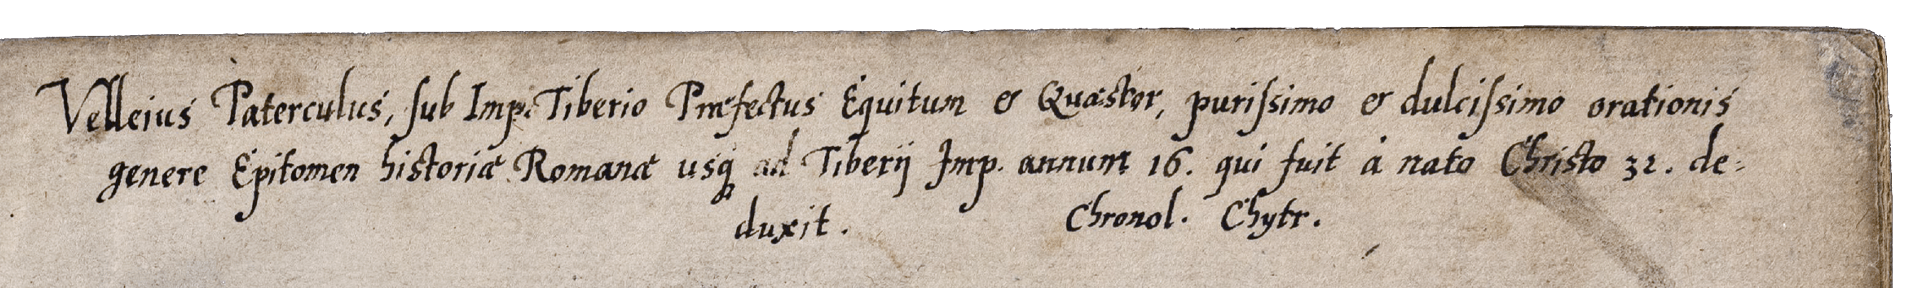 Velleius Paterculus, sub Imp. Tiberio Præfectus Equitum & Quæstor, purissimo & dulcissimo orationis
genere Epitomen historiæ Romanæ usq; ad Tiberij Imp. annum 16. qui fuit à nato Christo 32. de-
duxit. Chronol. Chytr.